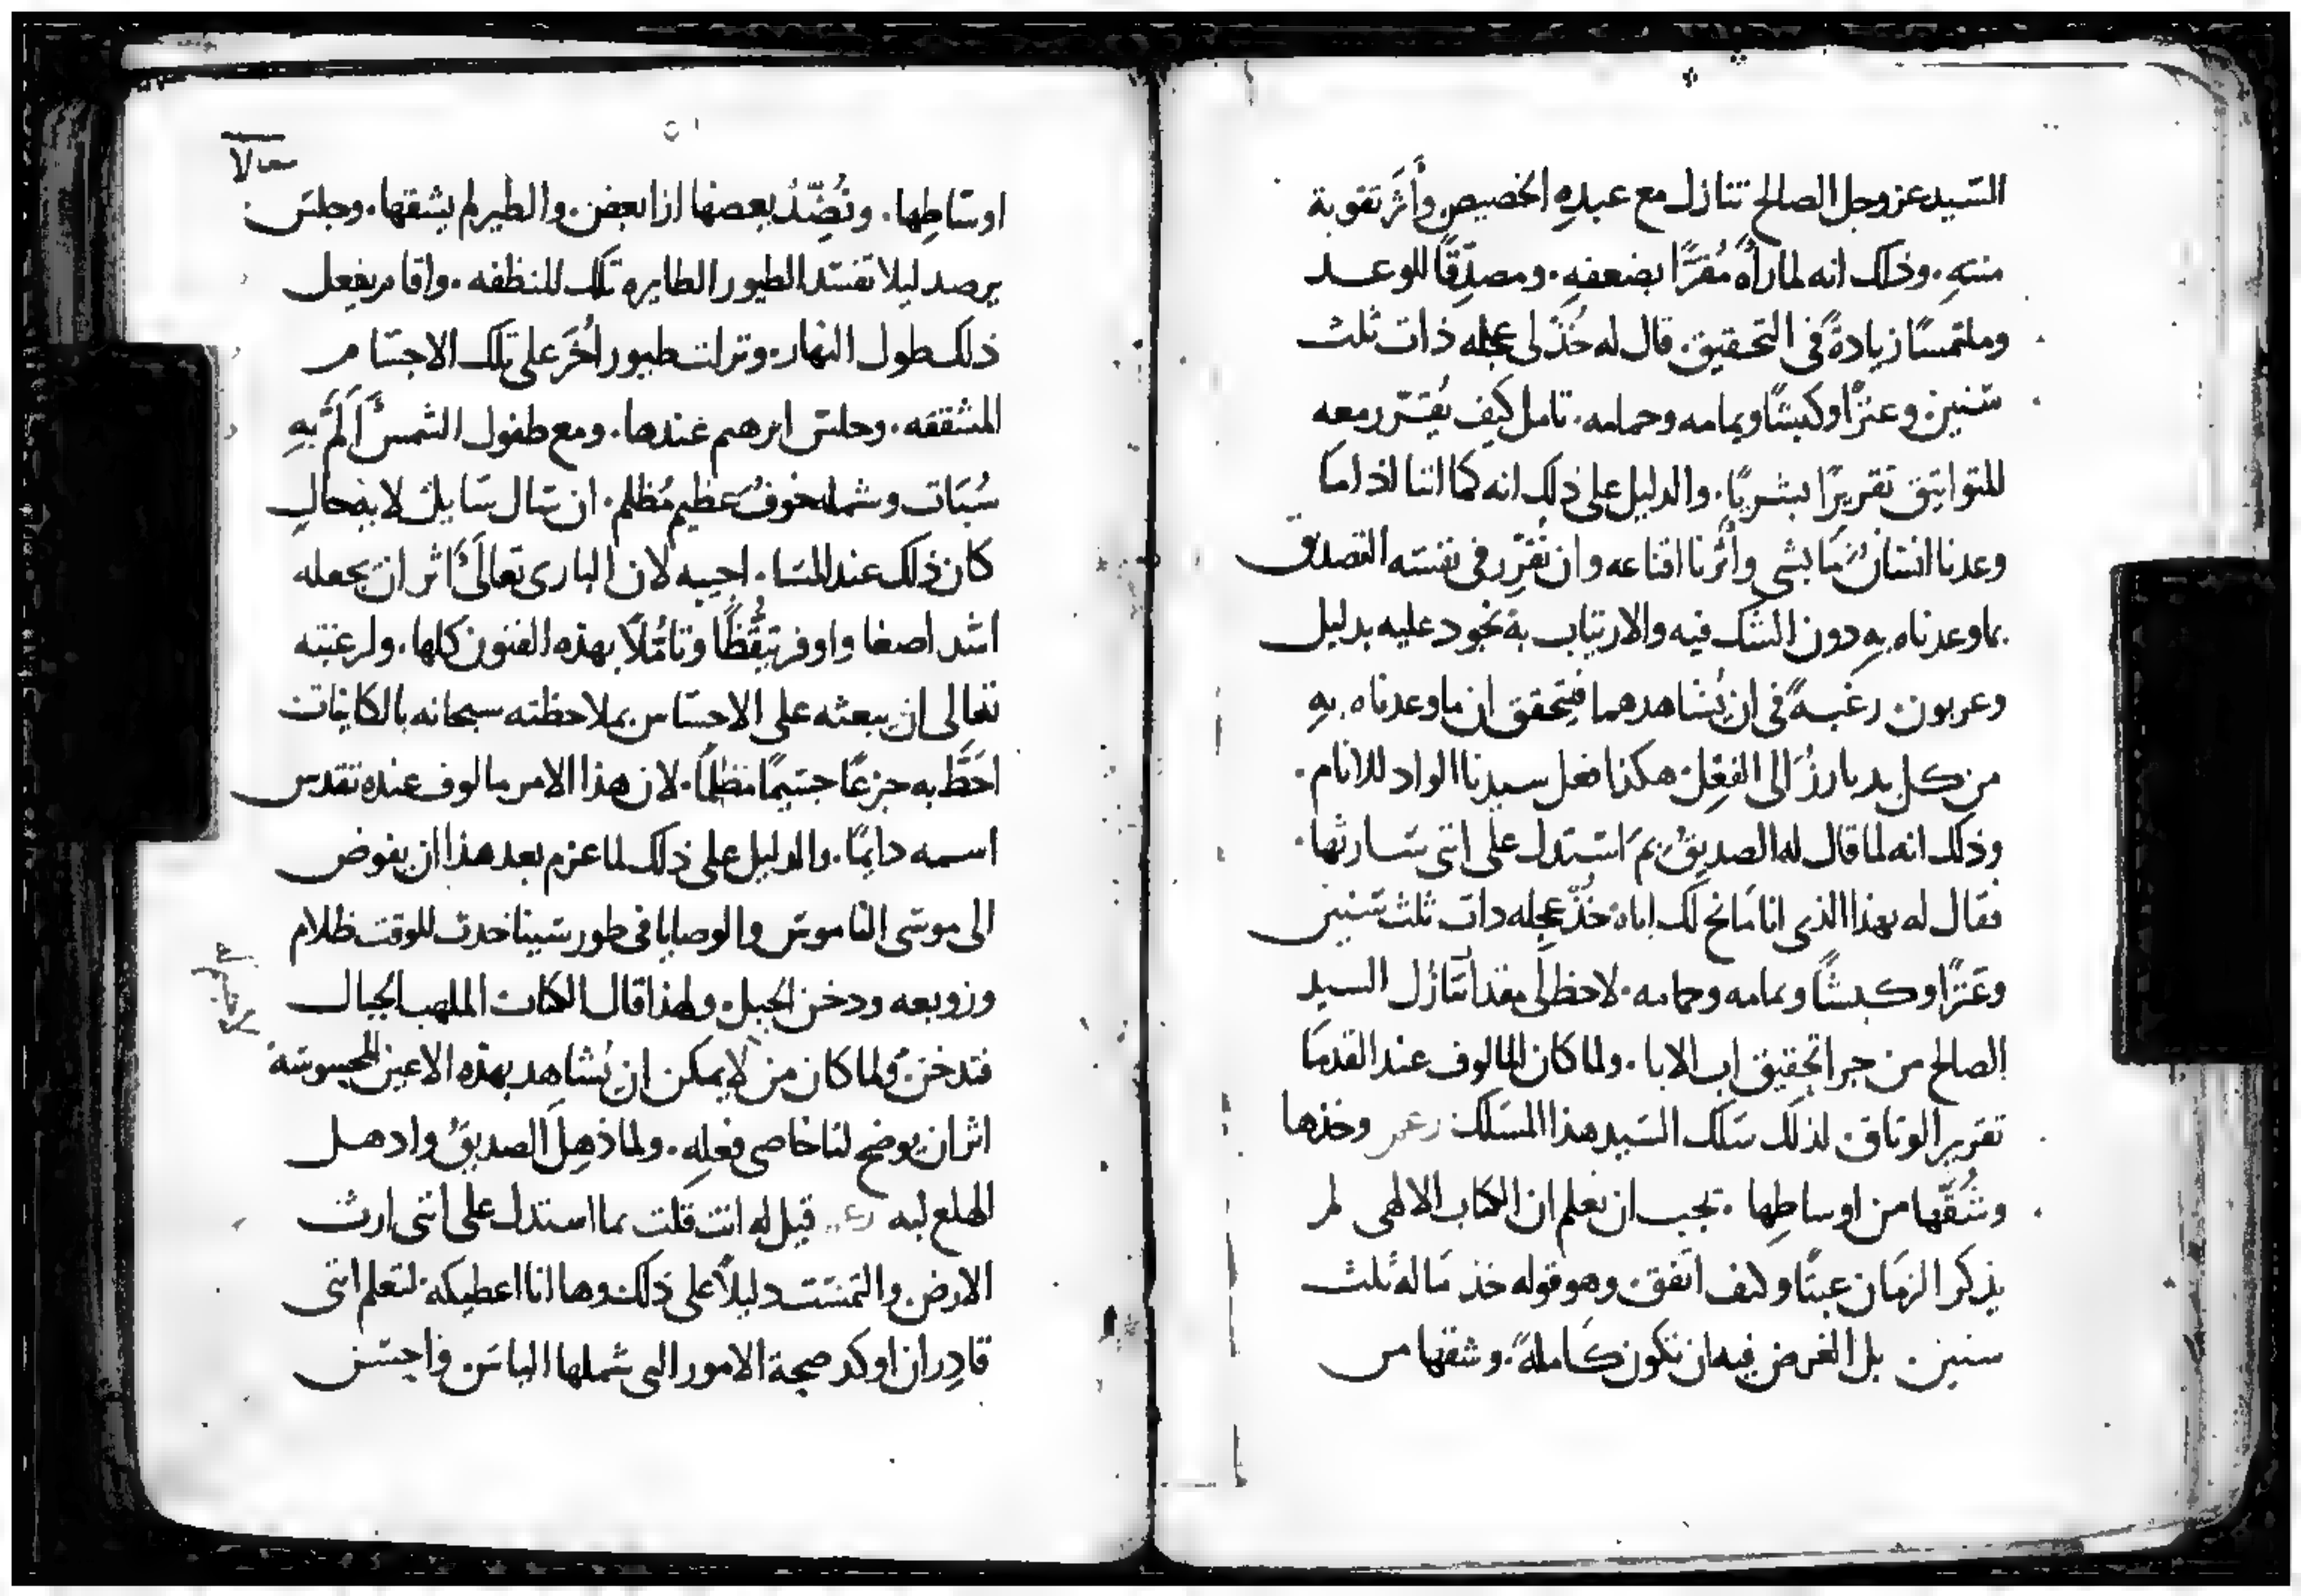 السيد عز وجل الصالح تنازل مع عبدِهِ الخصيص وأَثَر تقوية
منتهِ. وذلك انه لما رأهُ مُقرًّا بضعفهِ. ومصدِّقًا للوعد
وملتمسًا زيادةً في التحقيق. قال له خُذ لي عجله ذات ثلث
سنين. وعنزًا وكبشًا ويمامه وحمامه. تامل كيف يُقرّر معه
المواثيق تقريرًا بشريًا. والدليل على ذلك انه كما اننا اذا ما
وعدنا انسانٌ مَا بشي وأَثرنا اقناعه وان نُقرِّر في نفسه التصديق
بما وعدناه بهِ دون الشك فيه والارتياب به نجود عليه بدليل
وعربون. رغبةً في ان يُشاهدهما فيتحقق ان ما وعدناه بهِ
من كل بد بارزٌ الى الفِعْل. هكذا فعل سيدنا الواد للانام.
وذلك انه لما قال له الصديقُ بمَ استدل على انني سارثها.
فقال له بهذا الذي انا مانح لك اياهُ خُذ عجله ذات ثلث سنين
وعَنزًا وكبشًا ويمامه وحمامه. لاحظ لي مقدار تنازُل السيد
الصالح من جرا تحقيق اب الابا. ولما كان المالوف عند القدما
تقرير الوثاق. لذلك سلك السيد هذا المسلك وخذها
وشُقّها من اوساطِها. يجب ان نعلم ان الكتاب الالهي لم
يذكر الزمان عبثًا وكيف اتفق. وهو قوله خذ مَا لهُ ثلث
سنين. بل الغرض فيه ان تكون كاملةً. وشقها من
اوسَاطِها. ونُضِّدُ بعضها ازا بعض. والطير لم يشقها. وجلس
يرصد ليلا تفسد الطيور الطايره تلك المنظفه. واقام يفعل
ذلك طول النهار. ونزلت طيور اُخَر على تلك الاجسام
المشققه. وجلس ابرهيم عندها. ومع طفول الشمس أَلَمَّ بهِ
سُبَات وشمله خوفٌ عظيم مُظلم. ان سال سايل لايةِ حالٍ
كان ذلك عند المسا. اجيبه لان الباري تعالَى أَثر ان يجعله
اشد اصغا واوفر تيقُّظًا وتامُّلًا بهذه الفنون كلها. ولرغبته
تعالى ان يبعثه على الاحساس بملاحظته سبحانه بالكاينات
احَطَّ به جزعًا جسيمًا مظلمًا. لان هذا الامر مالوف عنده تقدس
اسمه دايمًا. والدليل على ذلك لما عزم بعد هذا ان يفوض
الى موسى الناموس والوصايا في طور سينا حدث للوقت ظلام
وزوبعه ودخن الجبل. ولهذا قال الكتاب الملهب الجبال
فتدخن. ولما كان من لا يمكن ان يُشاهد بهذه الاعين المحسوسة
اثر ان يوضح لنا خاصي فعلِه. ولما ذهِل الصديقُ واذهل
الهلع لبه قيل له انت قلت بما استدل على انني ارث
الارض. والتمست دليلاً على ذلك وها انا اعطيكهُ لتعلم انني
قادِر ان اوكد صحة الامور التي شملها الياس. واحسن